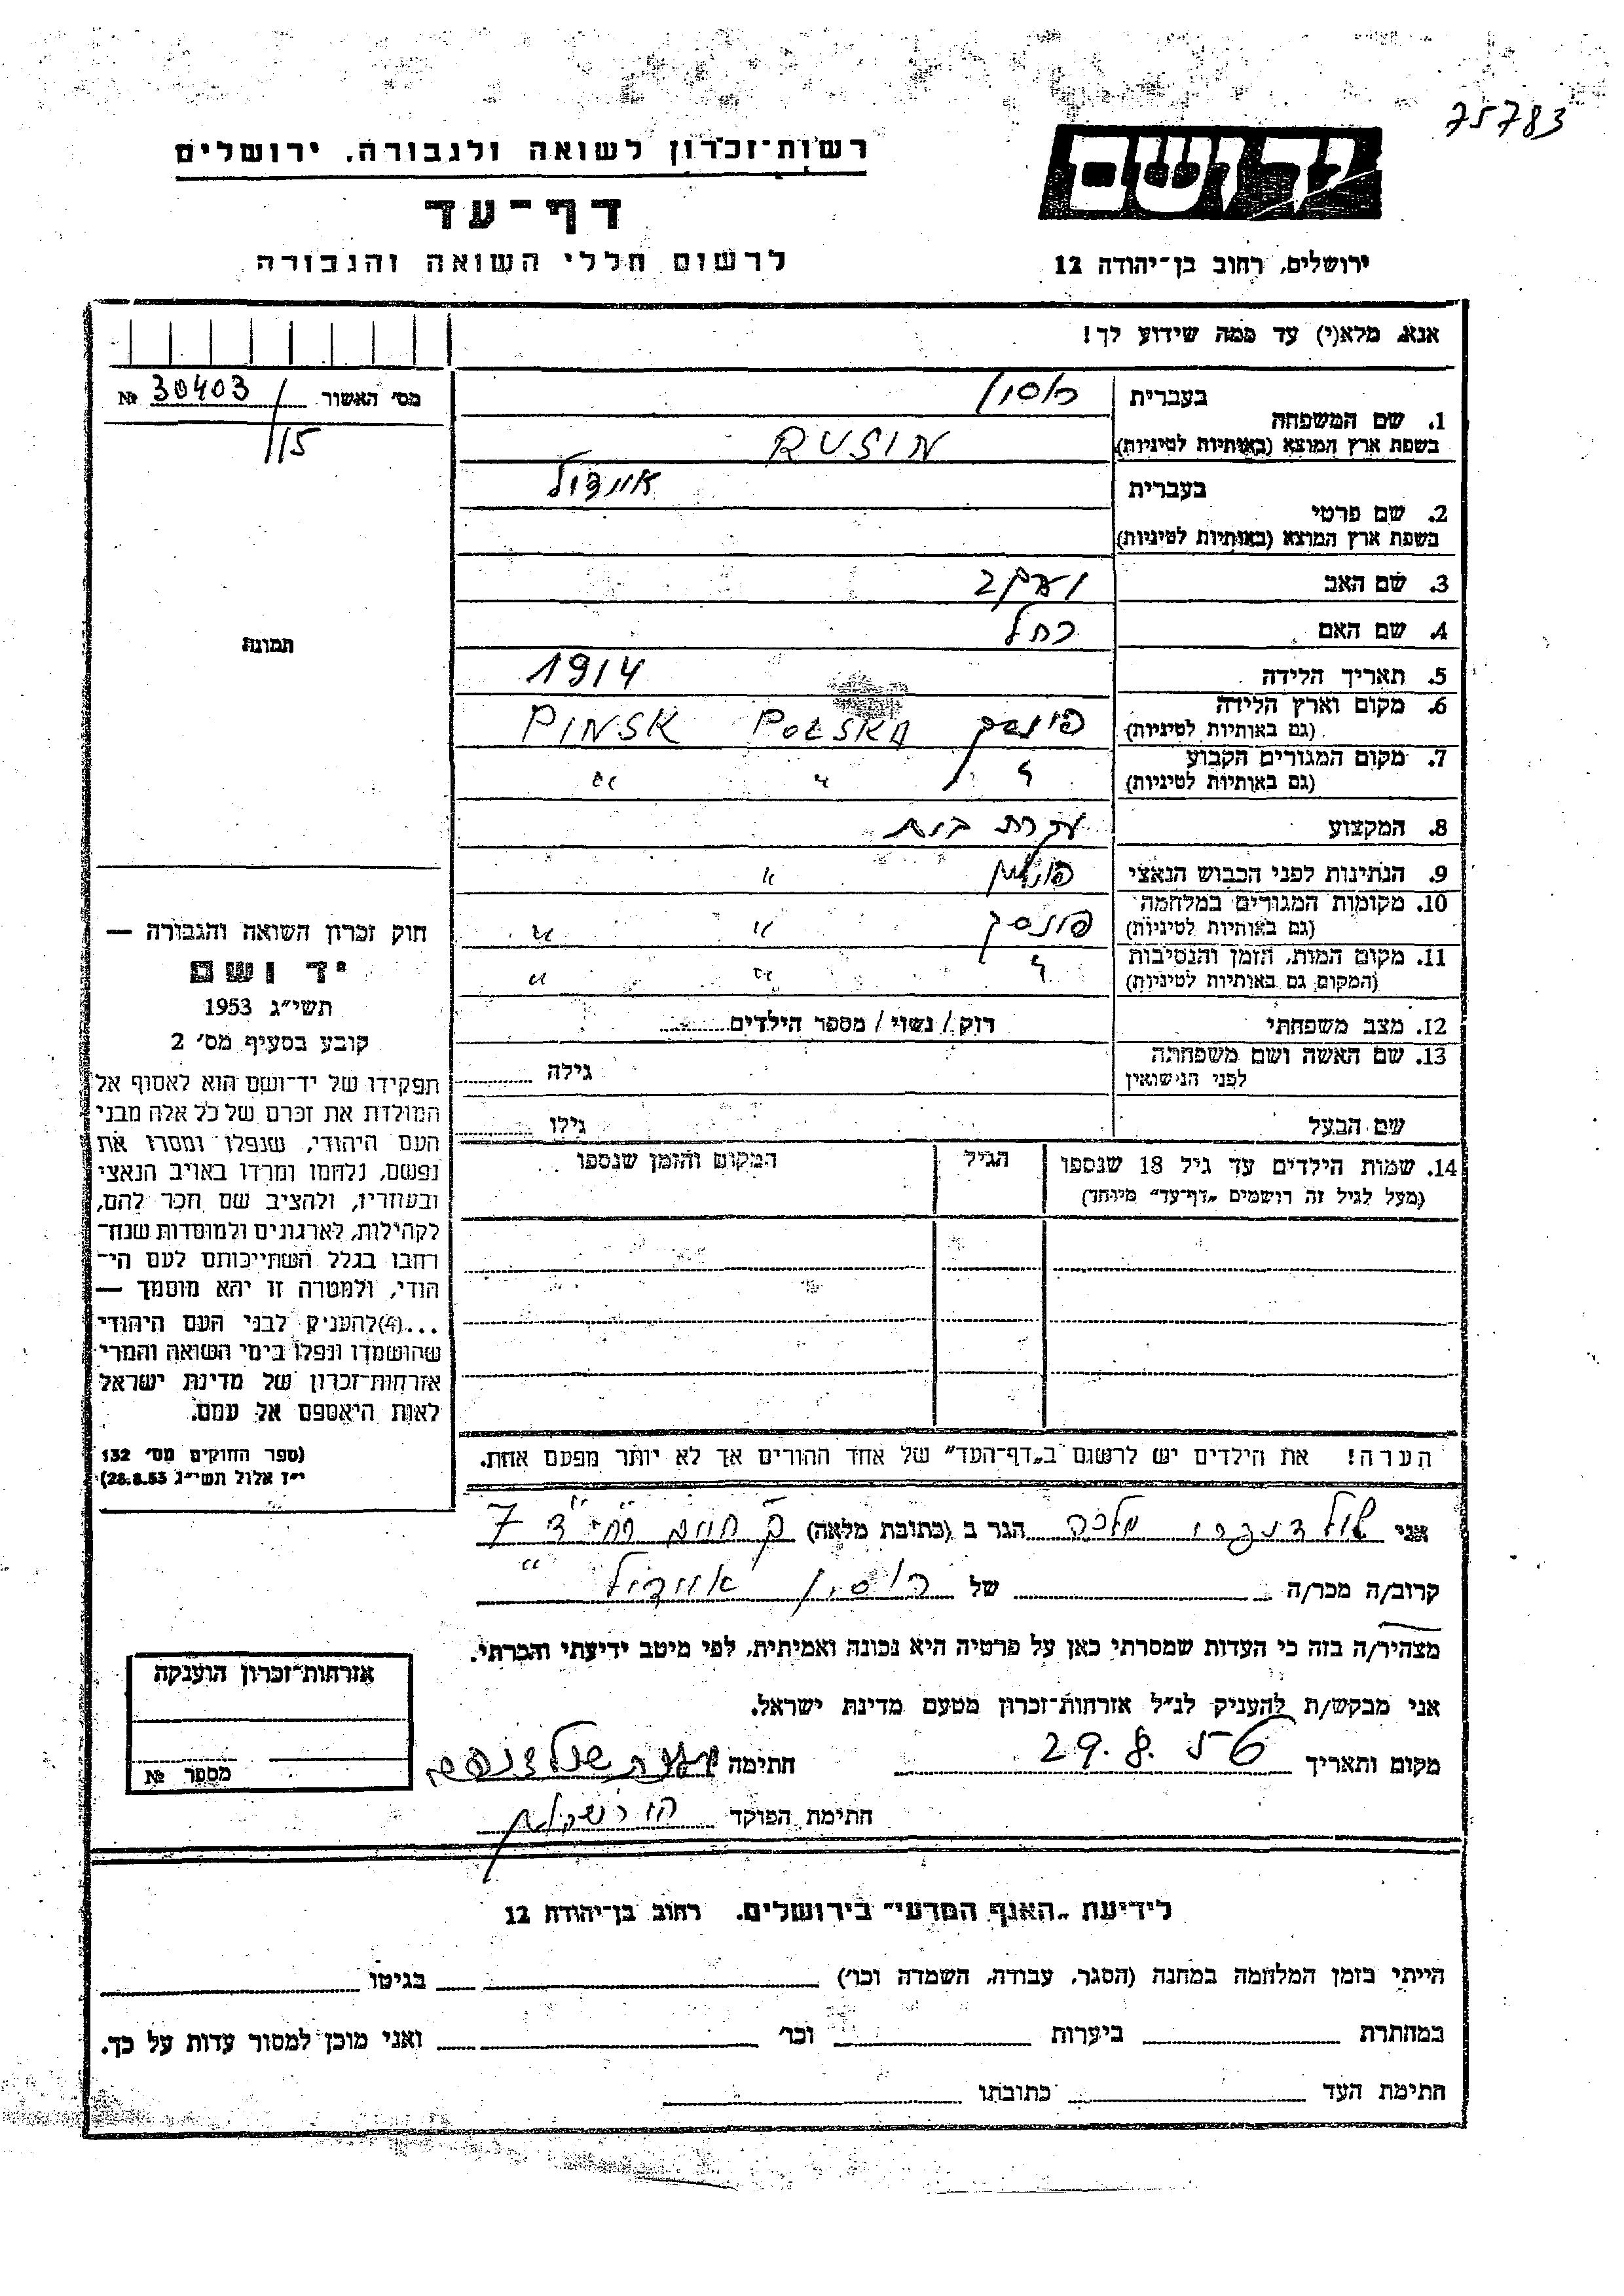 75783
יד ושם
רשות־זכרון לשואה ולגבורה, ירושלים
דף־עד
לרשום חללי השואה והגבורה
ירושלים, רחוב בן־יהודה 12
אנא, מלא(י) עד כמה שידוע לך!
מס׳ האשור 30403 №
115
1. שם המשפחה
בעברית רוסין
בשפת ארץ המוצא (באותיות לטיניות) RUSIN
2. שם פרטי
בעברית
בשפת ארץ המוצא (באותיות לטיניות)
3. שם האב יעקב
4. שם האם רחל
5. תאריך הלידה 1914
6. מקום וארץ הלידה פינסק POLSKA PINSK
(גם באותיות לטיניות)
7. מקום המגורים הקבוע " "
(גם באותיות לטיניות)
8. המקצוע עקרת בית
9. הנתינות לפני הכבוש הנאצי "
10. מקומות המגורים במלחמה פינסק " "
(גם באותיות לטיניות)
11. מקום המות, הזמן והנסיבות " "
(המקום גם באותיות לטיניות)
12. מצב משפחתי רוק / נשוי / מספר הילדים
13. שם האשה ושם משפחתה גילה
לפני הנישואין
שם הבעל גילו
14. שמות הילדים עד גיל 18 שנספו הגיל המקום והזמן שנספו
(מעל לגיל זה רושמים „דף־עד” מיוחד)
הערה! את הילדים יש לרשום ב„דף־העד” של אחד ההורים אך לא יותר מפעם אחת.
תמונה
חוק זכרון השואה והגבורה —
יד ושם
תשי״ג 1953
קובע בסעיף מס׳ 2
תפקידו של יד־ושם הוא לאסוף אל
המולדת את זכרם של כל אלה מבני
העם היהודי, שנפלו ומסרו את
נפשם, נלחמו ומרדו באויב הנאצי
ובעוזריו, ולהציב שם וזכר להם,
לקהילות, לארגונים ולמוסדות שנח־
רבו בגלל השתייכותם לעם הי־
הודי, ולמטרה זו יהא מוסמך —
...(4)להעניק לבני העם היהודי
שהושמדו ונפלו בימי השואה והמרי
אזרחות־זכרון של מדינת ישראל
לאות היאספם אל עמם.
(ספר החוקים מס׳ 132
י״ז אלול תשי״ג 28.8.53)
אני מלכה הגר ב (כתובת מלאה) 7
קרוב/ה מכר/ה של רוסין
מצהיר/ה בזה כי העדות שמסרתי כאן על פרטיה היא נכונה ואמיתית, לפי מיטב ידיעתי והכרתי.
אני מבקש/ת להעניק לנ״ל אזרחות־זכרון מטעם מדינת ישראל.
מקום ותאריך 29.8.56 חתימה
חתימת הפוקד
אזרחות־זכרון הוענקה
מספר №
לידיעת „האגף המדעי” בירושלים. רחוב בן־יהודה 12
הייתי בזמן המלחמה במחנה (הסגר, עבודה, השמדה וכו׳) בגיטו
במחתרת ביערות וכו׳ ואני מוכן למסור עדות על כך.
חתימת העד כתובתו